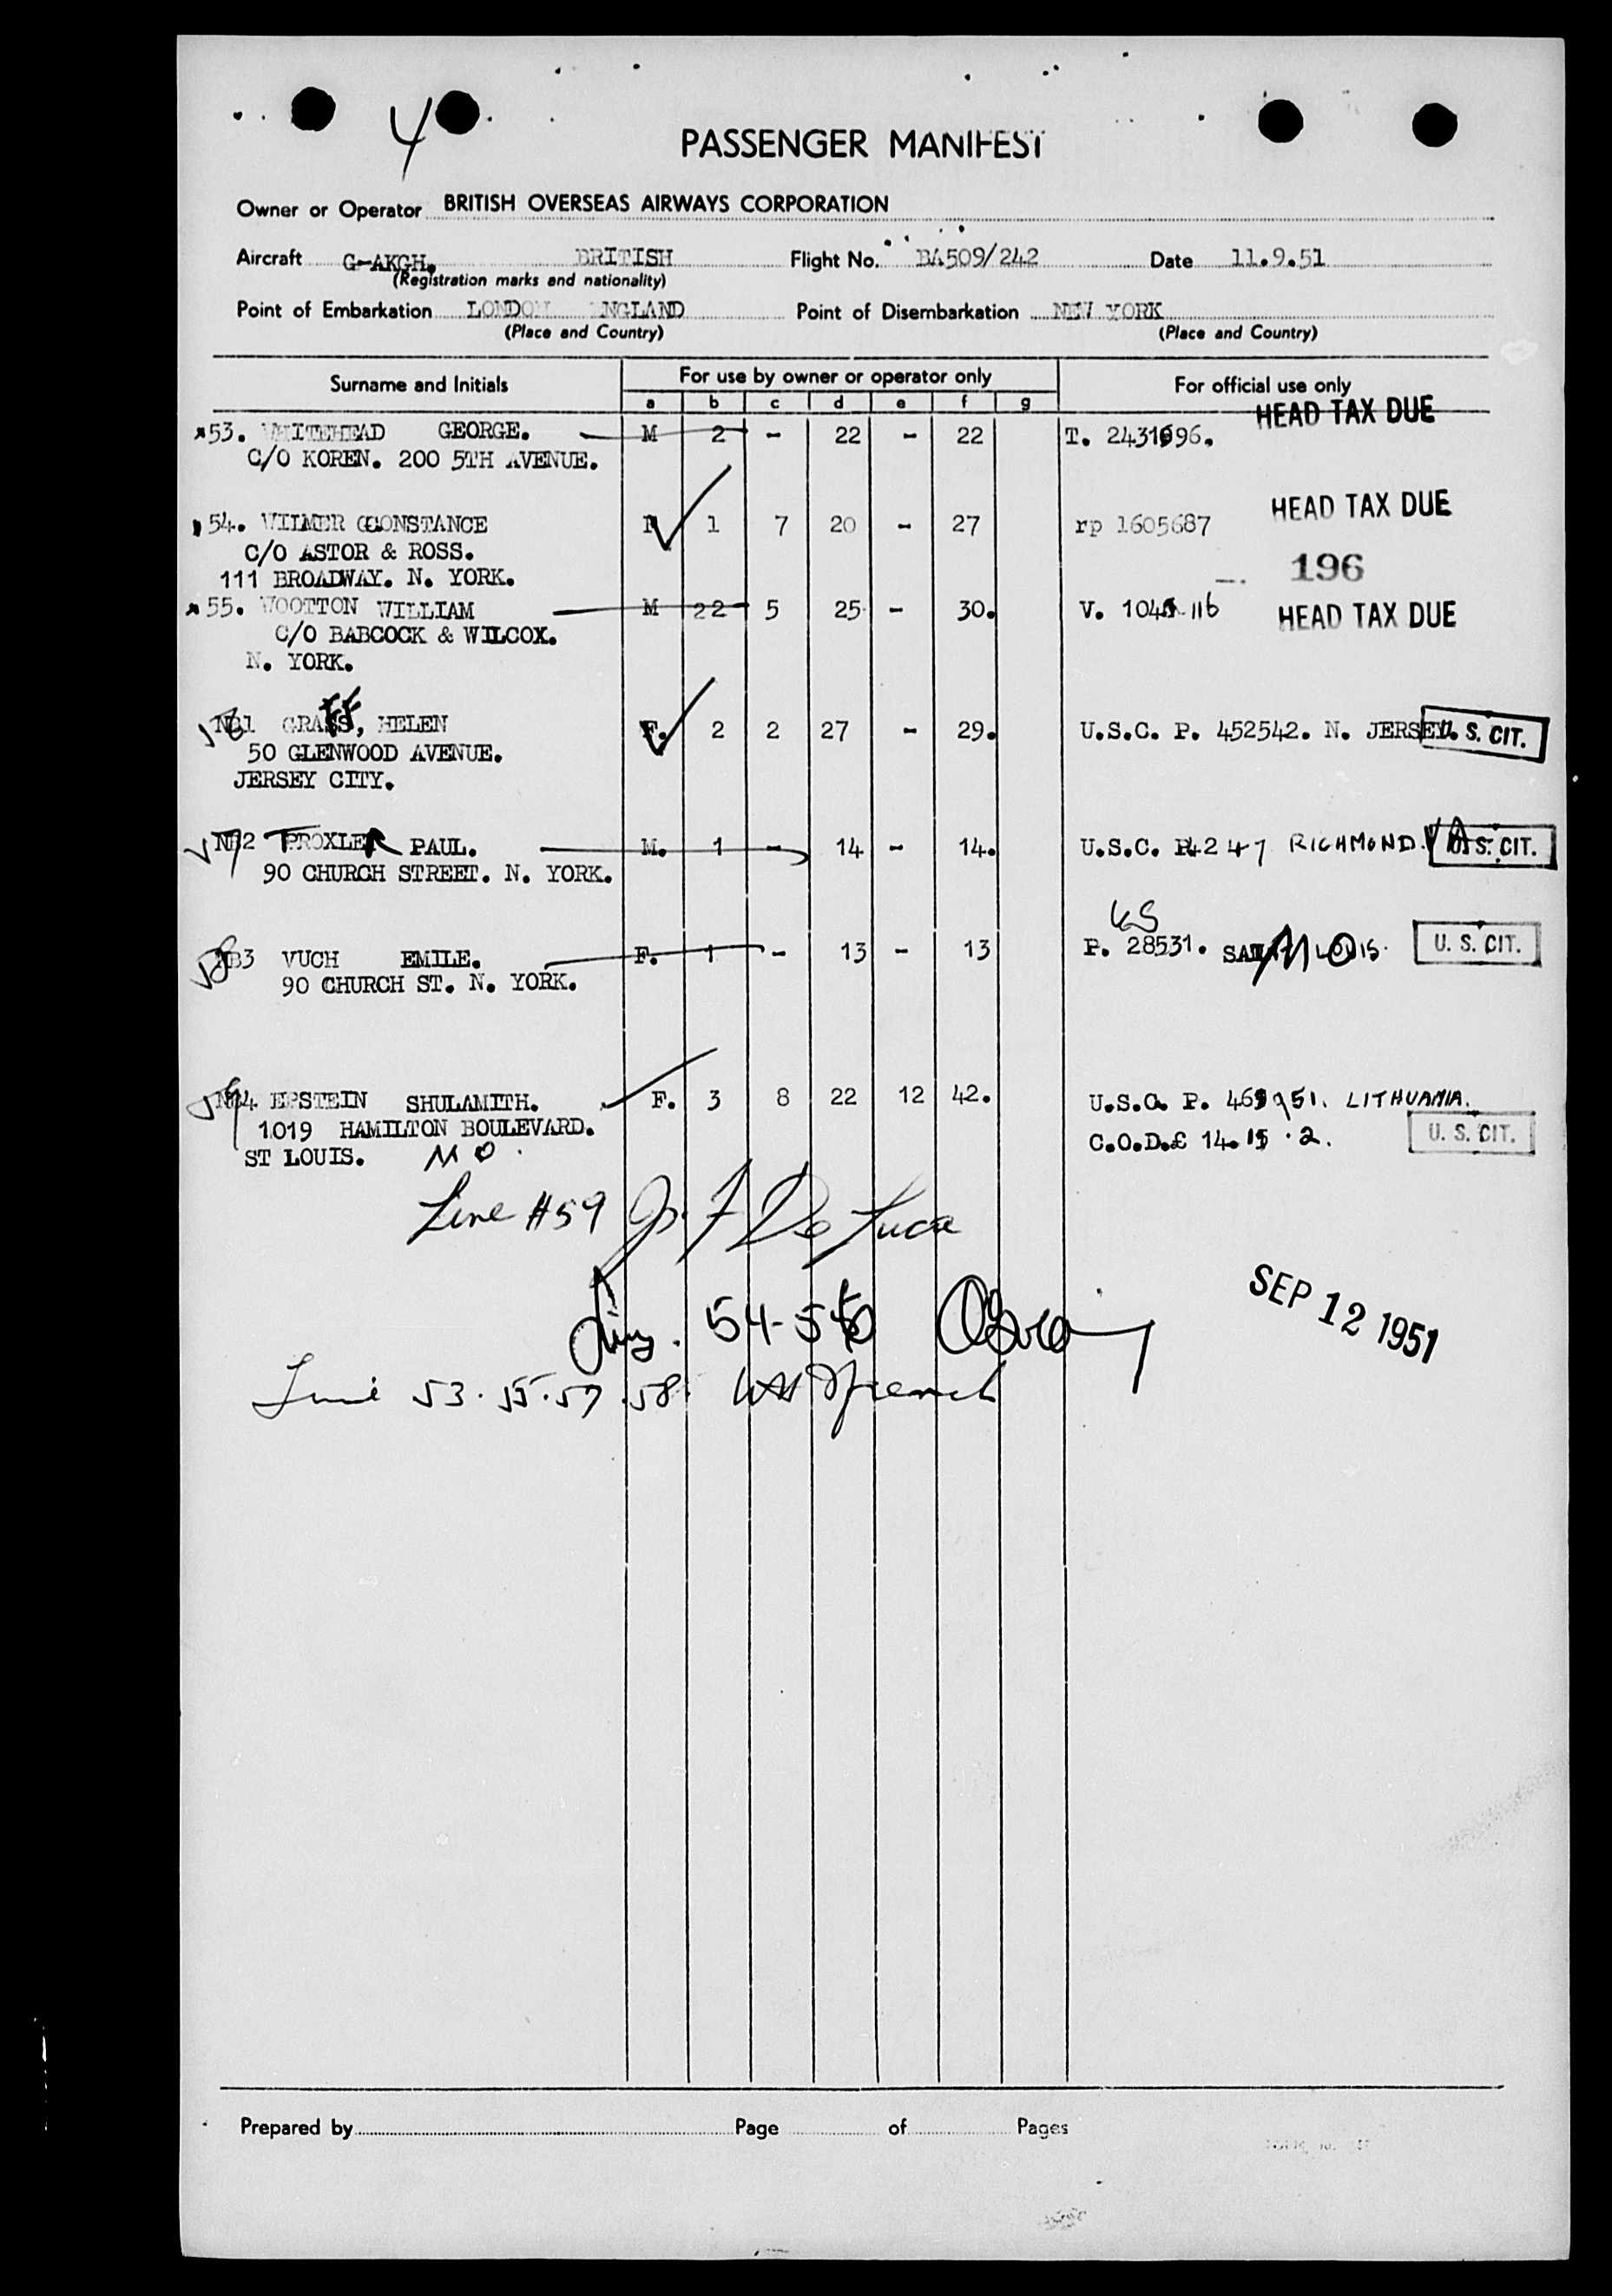 4
PASSENGER MANIFEST
Owner or Operator BRITISH OVERSEAS AIRWAYS CORPORATION
Aircraft G-AKGH. BRITISH Flight No. BA509/242 Date 11.9.51
(Registration marks and nationality)
Point of Embarkation LONDON ENGLAND Point of Disembarkation NEW YORK
(Place and Country) (Place and Country)
Surname and Initials For use by owner or operator only For official use only
a b c d e f g
HEAD TAX DUE
53. WHITEHEAD GEORGE. M 2 - 22 - 22 T. 2431696.
C/O KOREN. 200 5TH AVENUE.
HEAD TAX DUE
54. WILMER CONSTANCE 1 7 20 - 27 rp 1605687
C/O ASTOR & ROSS.
111 BROADWAY. N. YORK. 196
55. WOOTTON WILLIAM M 22 5 25 - 30. V. 104 116 HEAD TAX DUE
C/O BABCOCK & WILCOX.
N. YORK.
GRAFF, HELEN F. 2 2 27 - 29. U.S.C. P. 452542. N. JERSEY. U. S. CIT.
50 GLENWOOD AVENUE.
JERSEY CITY.
TROXLER PAUL. M. 1 - 14 - 14. U.S.C. 4247 RICHMOND. VA U. S. CIT.
90 CHURCH STREET. N. YORK.
US
VUCH EMILE. F. 1 - 13 - 13 P. 28531. LOUIS. U. S. CIT.
90 CHURCH ST. N. YORK.
EPSTEIN SHULAMITH. F. 3 8 22 12 42. U.S.C. P. 469951. LITHUANIA.
1019 HAMILTON BOULEVARD. C.O.D.£ 14.15.2. U. S. CIT.
ST LOUIS. MO.
Line #59 Jos. F De Luca
54-56
SEP 12 1951
Line 53. 55. 57. 58. WH French
Prepared by Page of Pages